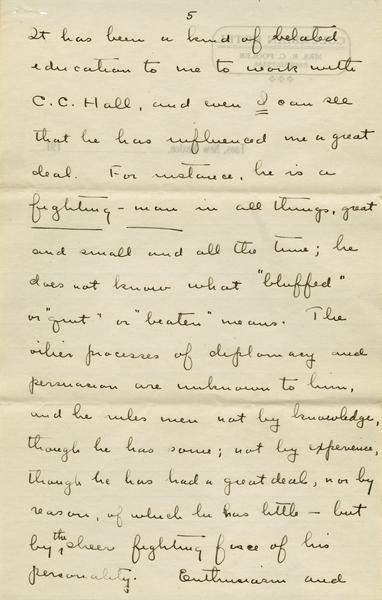 5
It has been a kind of belated
education to me to work with
C.C. Hall, and even I can see
that he has influenced me a great
deal. For instance, he is a
fighting-man in all things, great
and small and all the time; he
does not know what "bluffed"
or "quit" or "beaten" means. The
oilier processes of diplomacy and
persuasion are unknown to him,
and he rules men not by knowledge,
though he has some; not by experience,
though he has had a great deal, nor by
reason, of which he has little - but
by the sheer fighting force of his
personality. Enthusiasm and